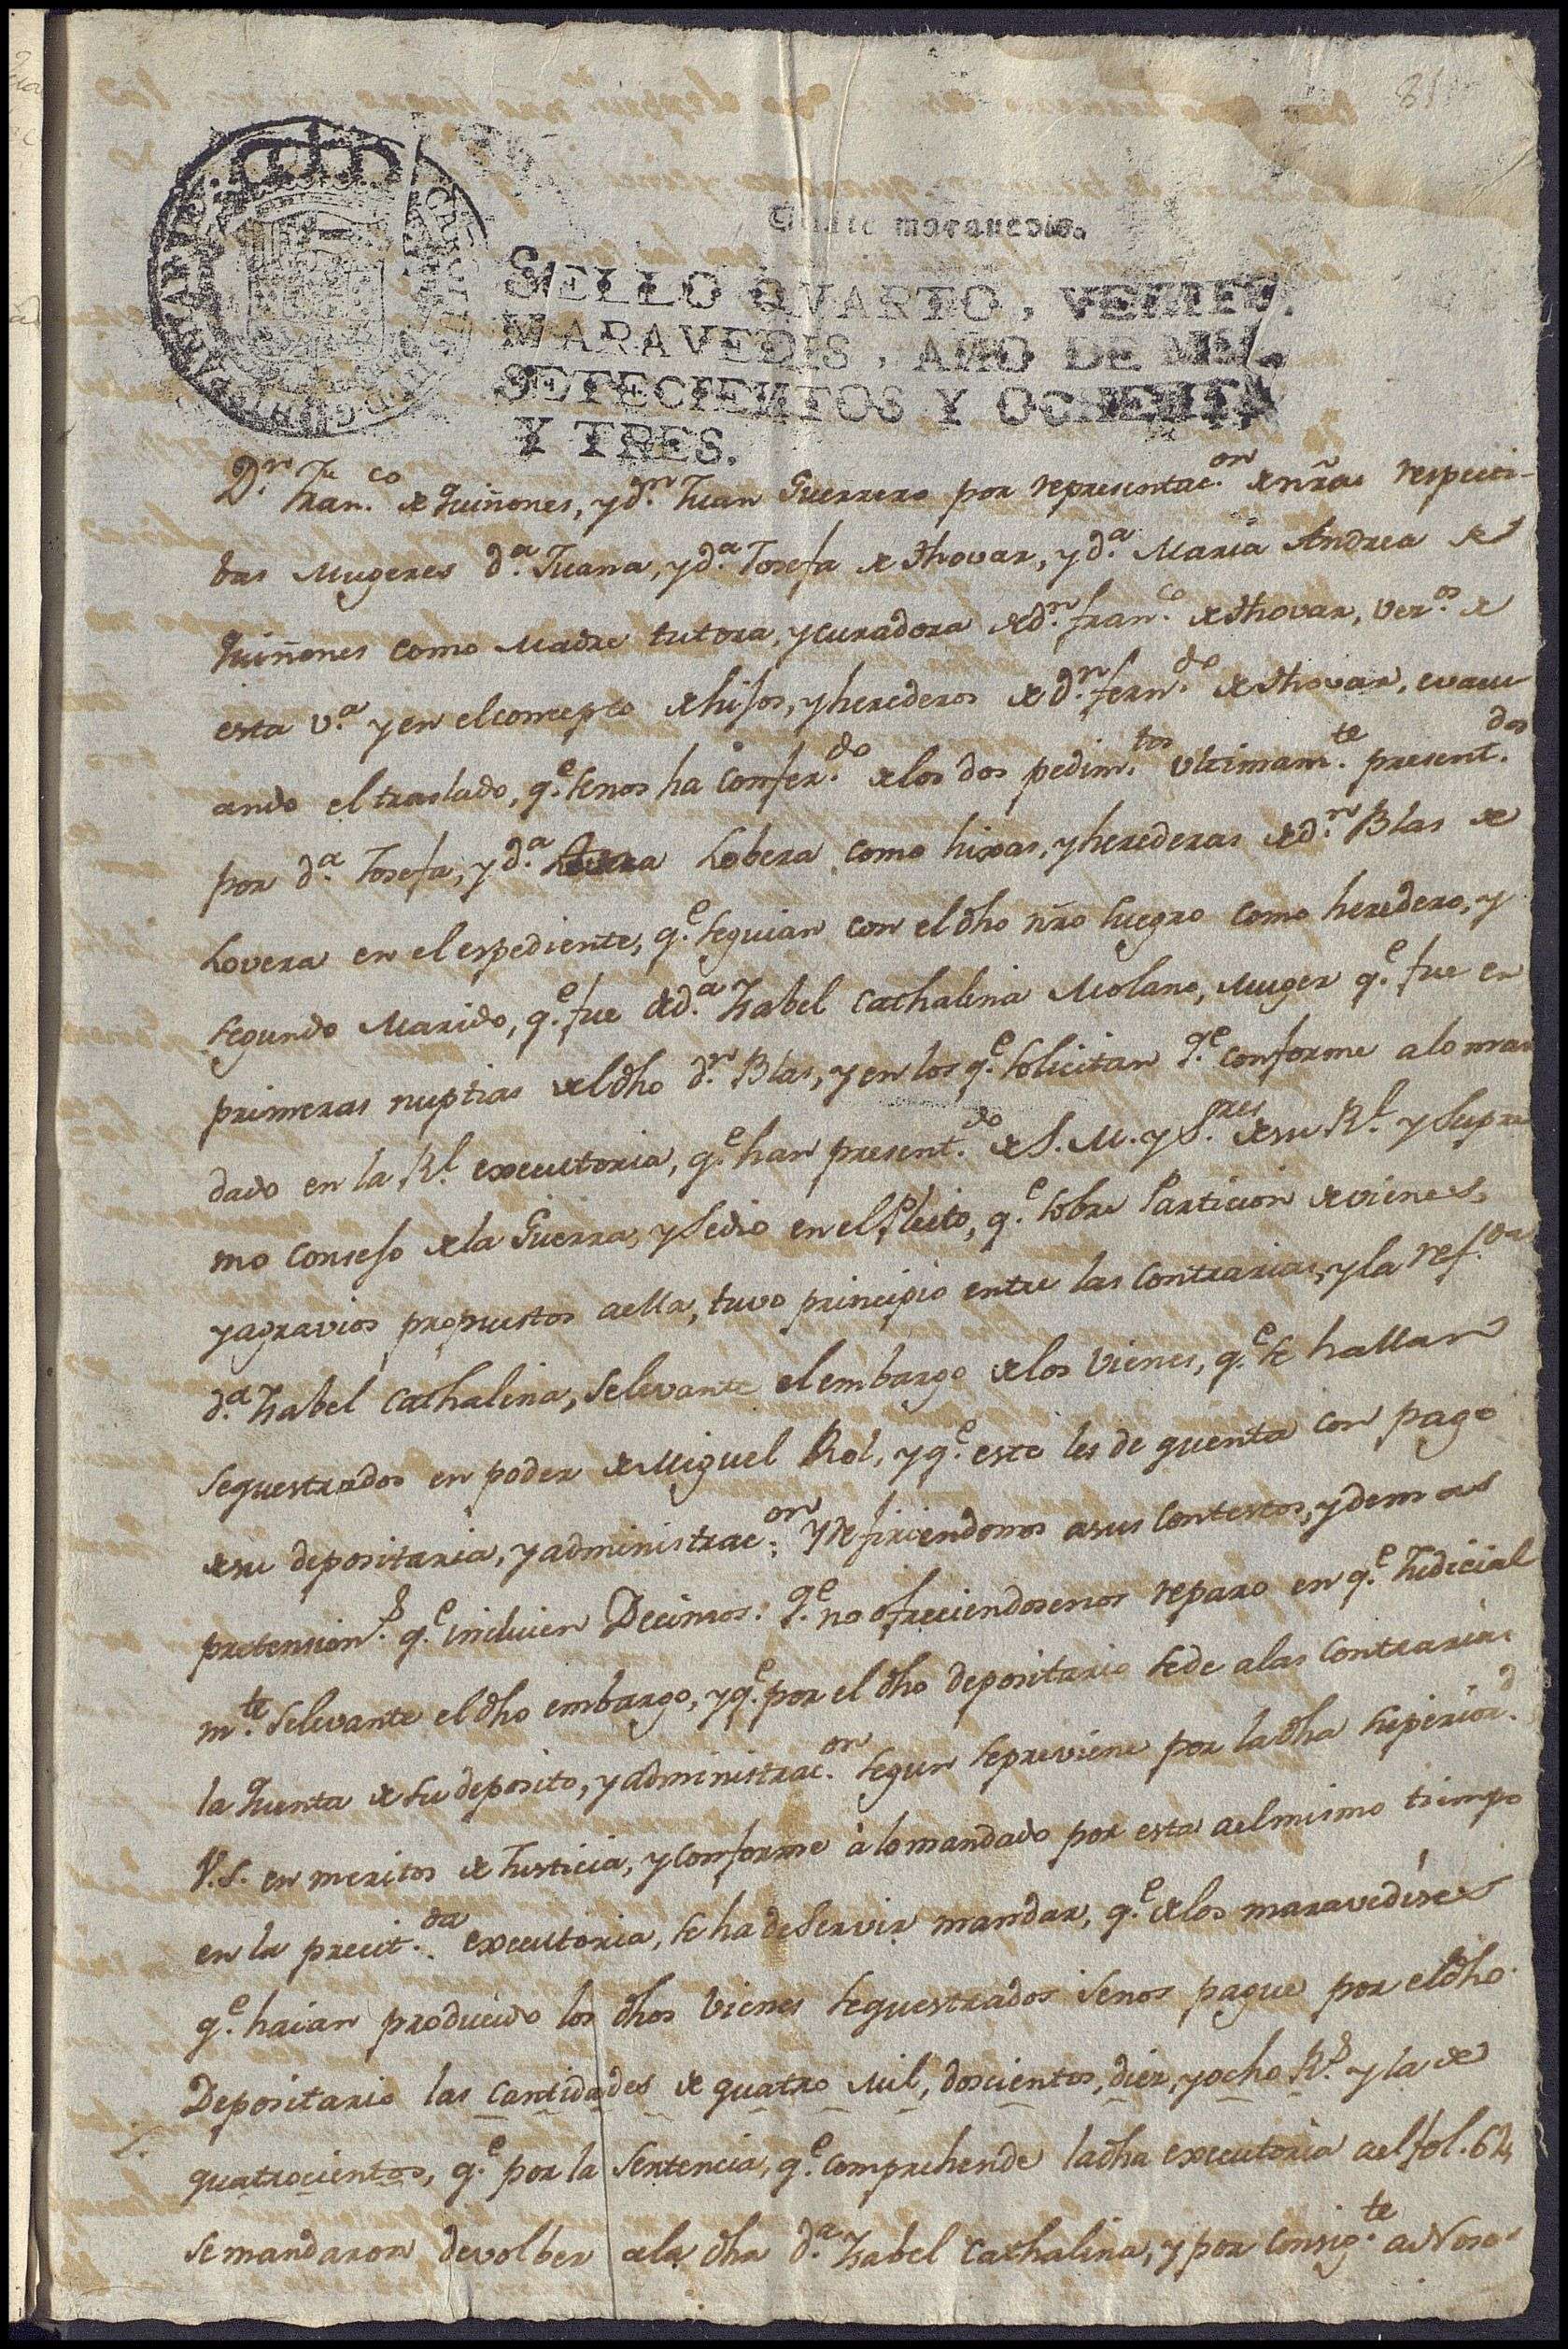 81
Veinte maravedis.
SELLO QVARTO, VEINTE
MARAVEDIS, AÑO DE MIL
SETECIENTOS Y OCHENTA
Y TRES.
D.n Fran.co de Quiñones, y d.n Juan Guerrero por representac.on de nr̃as respecti-
bas Mugeres d.a Juana, y d.a Josefa de thovar, y d.a Maria Andrea de
Quiñones como Madre tutora, y curadora de d.n fran.co de thovar, vez.os de
esta v.a y en el concepto de hijos, y herederos de d.n fern.do de thovar, evacu
ando el traslado, q.e se nos ha confer.do de los dos pedim.tos ultimam.te present.dos
por d.a Josefa, y d.a Lobera como hixas, y herederas de d.n Blas de
Lovera en el espediente, q.e seguian con el dho nr̃o suegro como heredero, y
segundo Marido, q.e fue de d.a Ysabel Cathalina Molano, Muger q.e fue en
primeras nuptias del dho d.n Blas, y en los q.e solicitan q.e conforme a lo man
dado en la R.l executoria, q.e han present.do de S. M. y S.res de su R.l y Supre
mo Consejo de la Guerra, y se dio en el Pleito, q.e sobre Particion de vienes,
y agravios propuestos a ella, tuvo principio entre las contrarias, y la ref.da
d.a Ysabel Cathalina, se levante el embargo de los vienes, q.e se hallan
sequestrados en poder de Miguel Rol, y q.e este les de quenta con pago
de su depositaria, y administrac.on y refiriendonos a sus contextos, y demas
pretension.s q.e incluien Decimos. q.e no ofreciendosenos reparo en q.e Judicial
m.te se levante el dho embargo, y q.e por el dho depositario se de a las contrarias
la quenta de su deposito, y administrac.on segun se previene por la dha superior.d
V.S. en meritos de Justicia, y conforme à lo mandado por esta a el mismo tiempo
en la precit.da executoria, se ha de servir mandar, q.e de los maravedises
q.e haian producido los dhos vienes sequestrados se nos pague por el dho
Depositario las cantidades de quatro mil, doscientos, diez, y ocho R.s y la de
quatrocientos, q.e por la sentencia, q.e comprehende la dha executoria a el fol. 64
se mandaron devolber a la dha d.a Ysabel Cathalina, y por consig.te a Noso